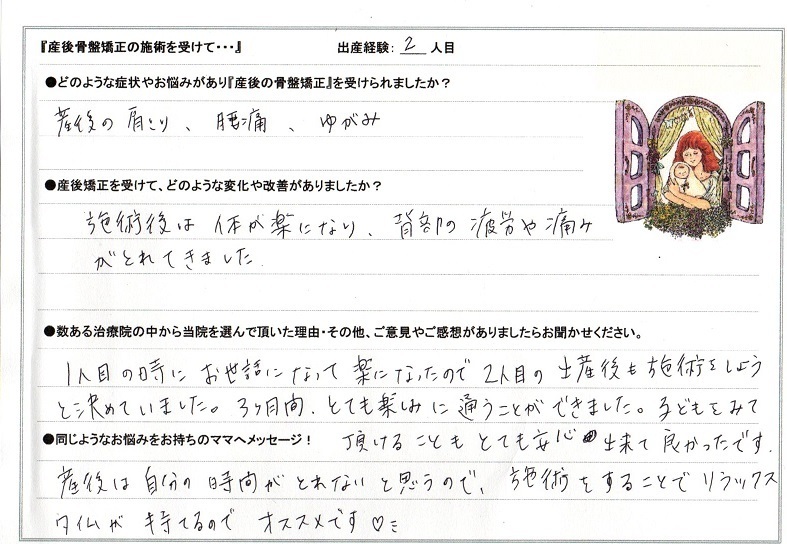 『産後骨盤矯正の施術を受けて・・・』 出産経験: 2 人目
●どのような症状やお悩みがあり『産後の骨盤矯正』を受けられましたか？
産後の肩こり、腰痛、ゆがみ
●産後矯正を受けて、どのような変化や改善がありましたか？
施術後は体が楽になり、背部の疲労や痛み
がとれてきました
●数ある治療院の中から当院を選んで頂いた理由・その他、ご意見やご感想がありましたらお聞かせください。
1人目の時にお世話になって楽になったので2人目の出産後も施術をしよう
と決めていました。3ヶ月間、とても楽しみに通うことができました。子どもをみて
●同じようなお悩みをお持ちのママへメッセージ！ 頂けることもとても安心出来て良かったです.
産後は自分の時間がとれないと思うので、施術をすることでリラックス
タイムが持てるのでオススメです♡